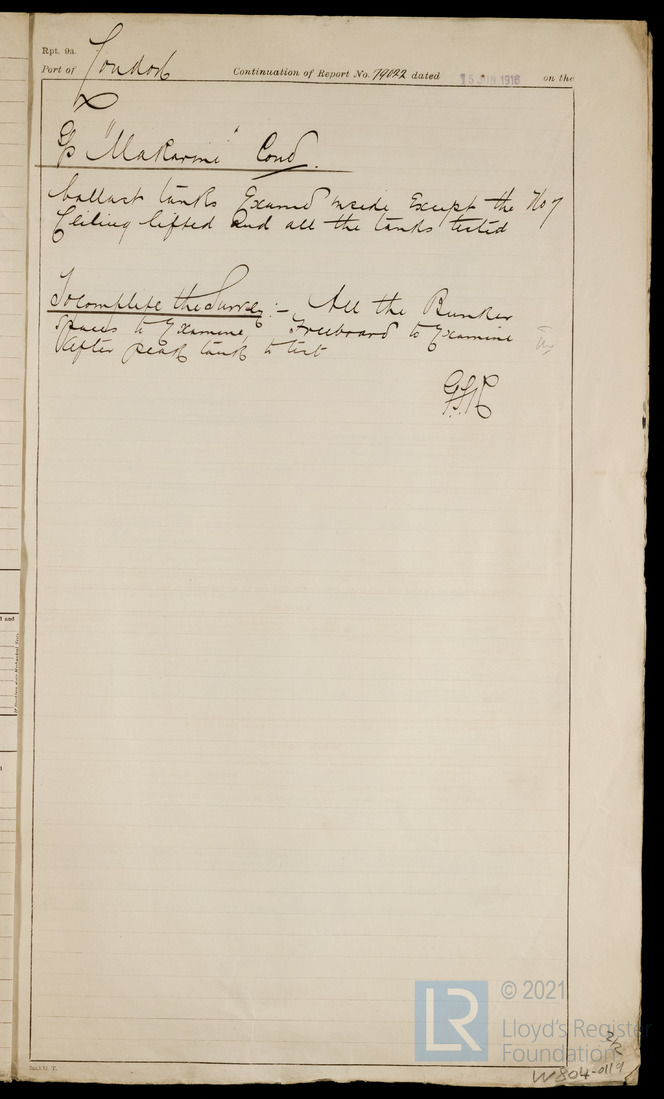 Rpt. 9a.
Port of London
Continuation of Report No. 79022 dated 15 JUN 1916 on the
S/S "Makarini" Cond.
ballast tanks Examd inside Except the No 7
Ceiling lifted and all the tanks tested
To complete the Survey :- All the Bunker
Spaces to Examine, Freeboard to Examine
After peak tank to test
© 2021
Lloyd's Register
Foundation
W804-0119